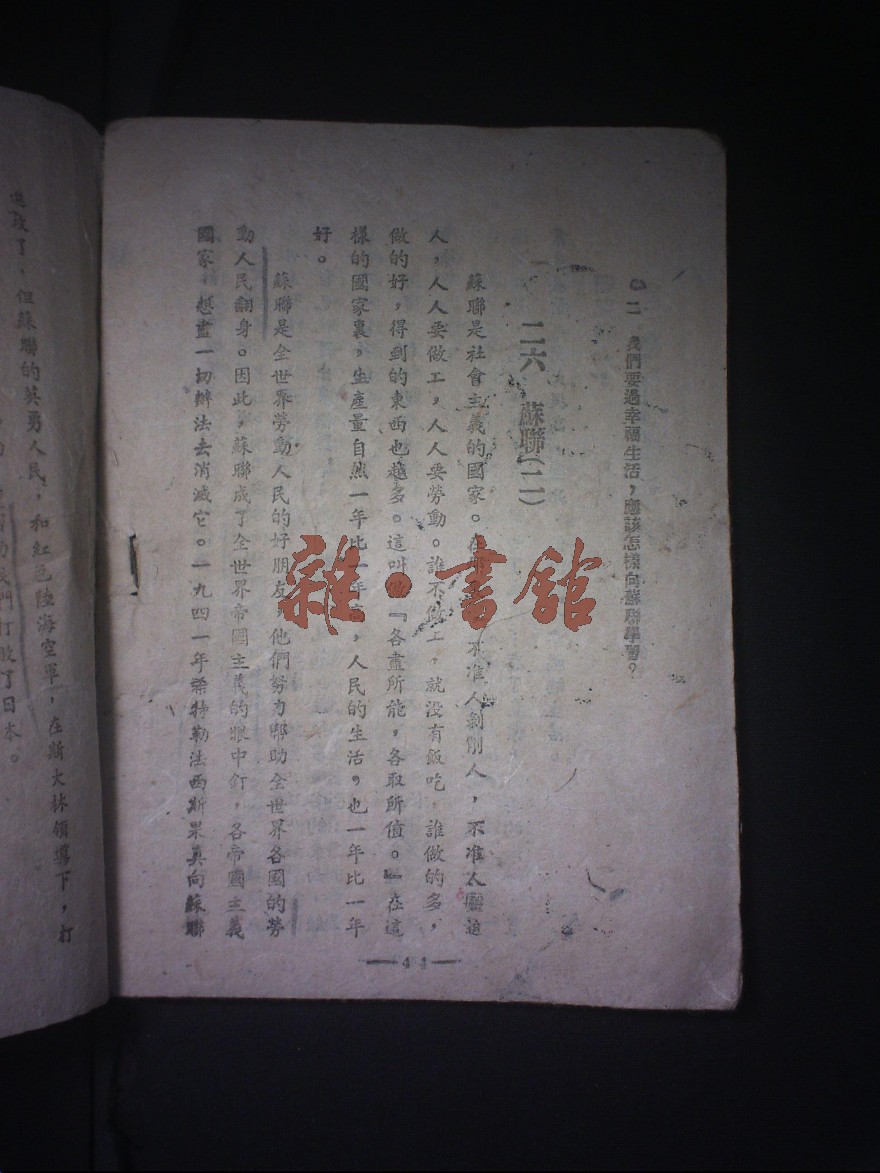 二 我們要過幸福生活，應該怎樣向蘇聯學習？
二六 蘇聯（二）
蘇聯是社會主義的國家。在 不准人剝削人，不准人壓迫
人，人人要做工，人人要勞動。誰不做工，就没有飯吃，誰做的多，
做的好，得到的東西也越多。這叫做『各盡所能，各取所值。』在這
樣的國家裏，生產量自然一年比一年 ，人民的生活，也一年比一年
好。
蘇聯是全世界勞動人民的好朋友，他們努力幇助全世界各國的勞
動人民翻身。因此，蘇聯成了全世界帝國主義的眼中釘，各帝國主義
國家，想盡一切辦法去消滅它。一九四一年希特勒法西斯果真向蘇聯
進攻了，但蘇聯的英勇人民，和紅色陸海空軍，在斯大林領導下，打
我們打敗了日本。
雜·書館